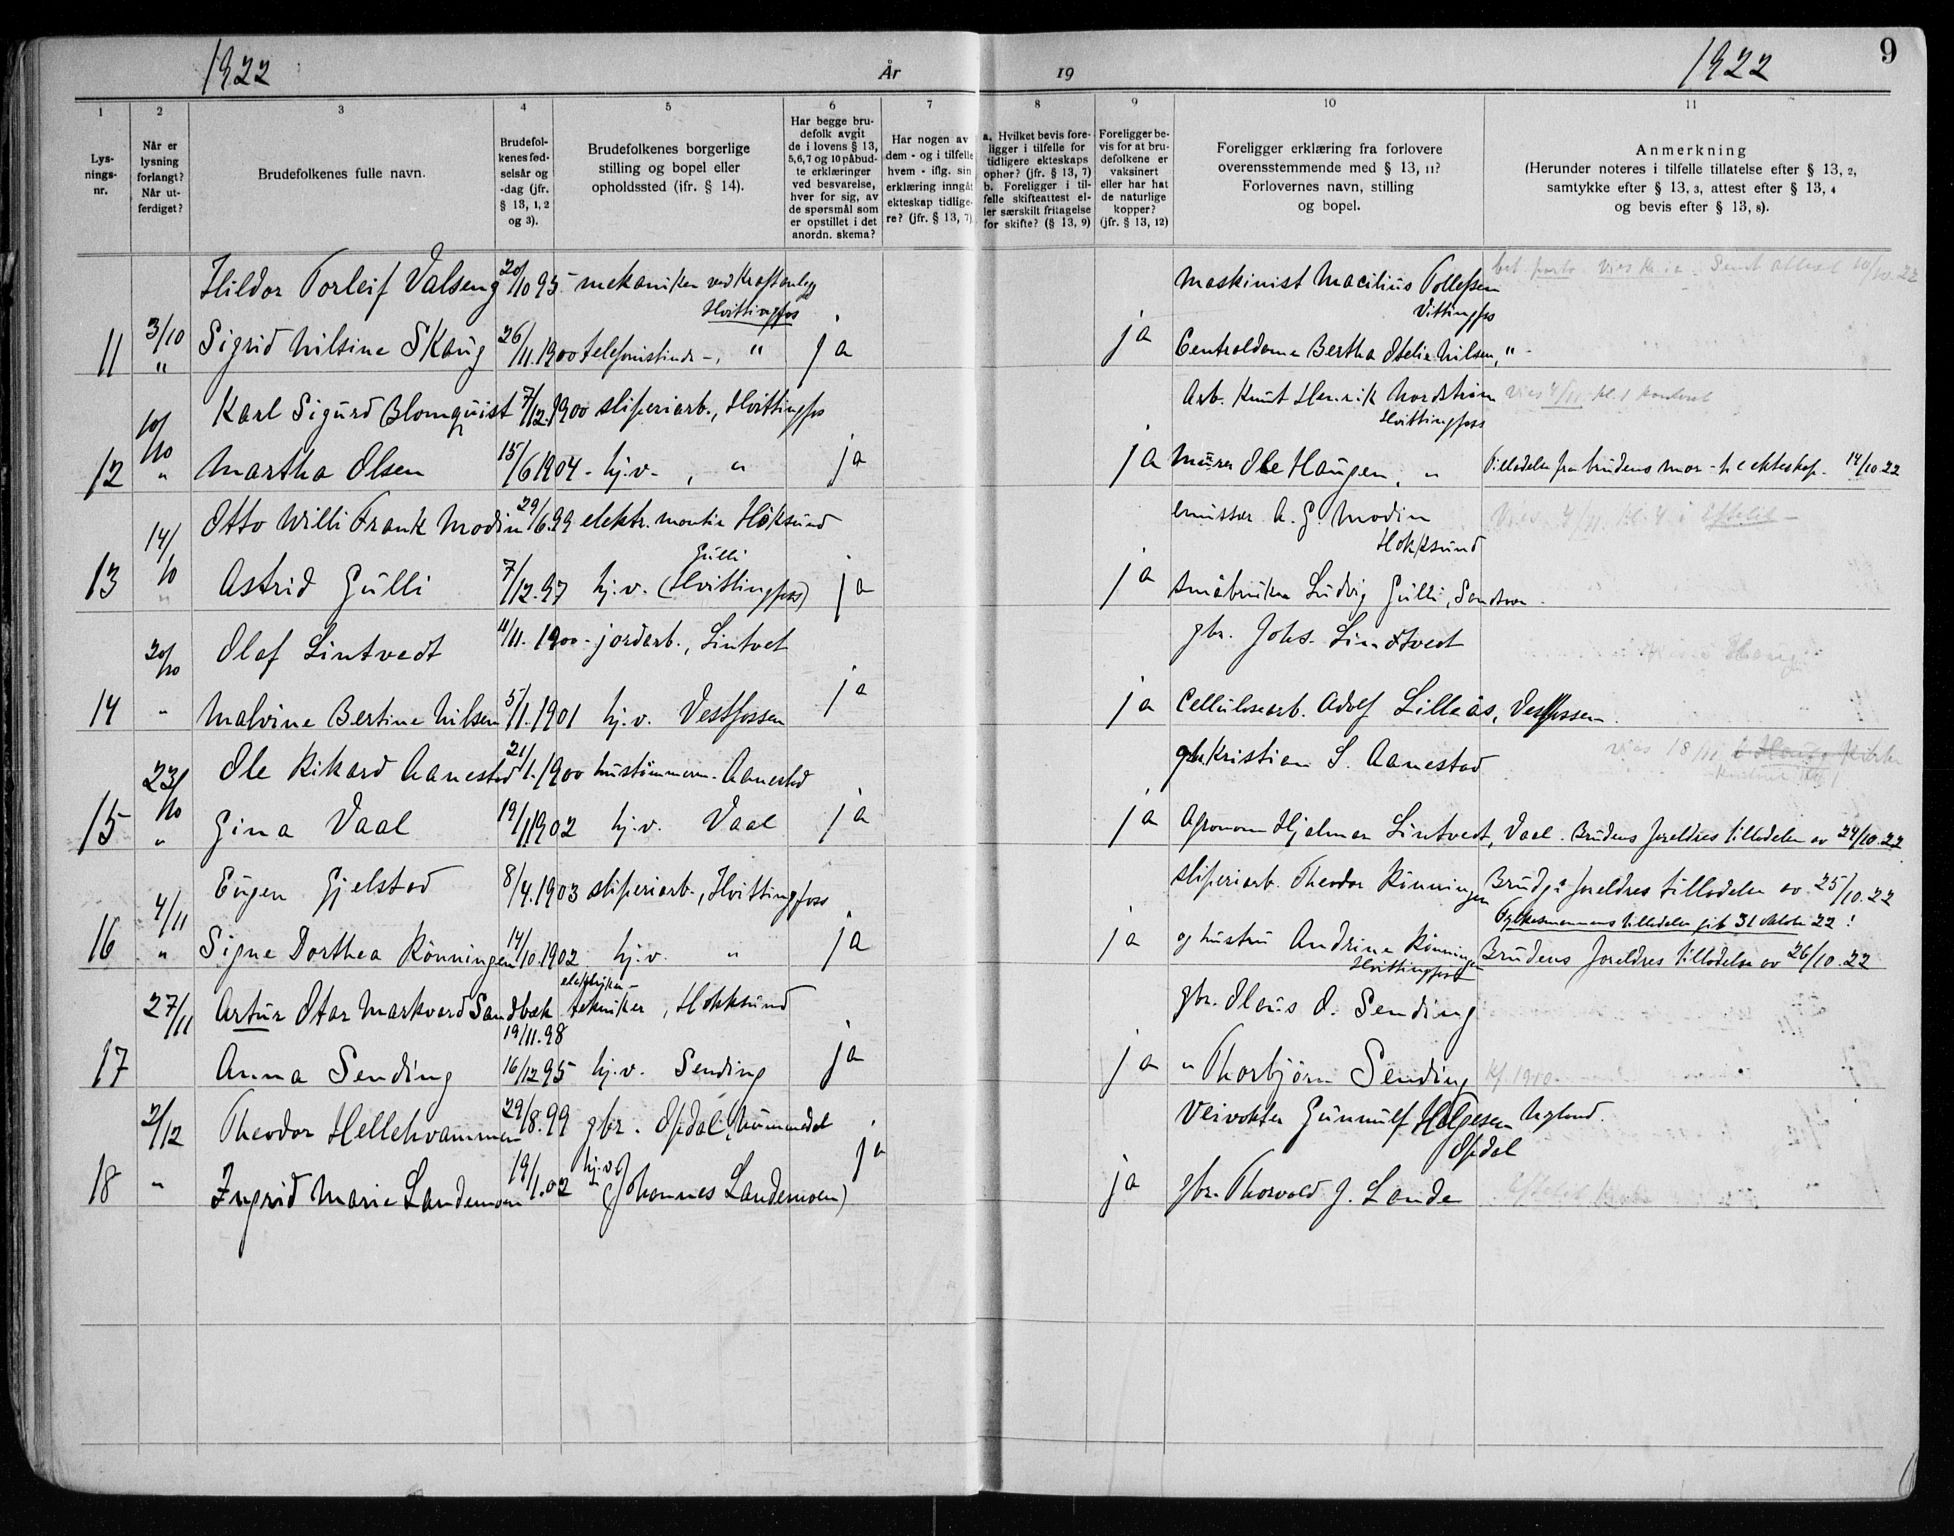 1922 År 19 1922 9
1 2 3 4 5 6 7 8 9 10 11
Lys-
nings-
nr.
Når er
lysning
forlangt?
Når ut-
ferdiget?
Brudefolkenes fulle navn.
Brudefol-
kenes fød-
selsår og
-dag (jfr.
§ 13, 1, 2
og 3).
Brudefolkenes borgerlige
stilling og bopel eller
opholdssted (jfr. § 14).
Har begge bru-
defolk avgit
de i lovens § 13,
5,6,7 og 10 påbud-
te erklæringer
ved besvarelse,
hver for sig, av
de spørsmål som
er opstillet i det
anordn. skema?
Har nogen av
dem - og i tilfelle
hvem - iflg. sin
erklæring inngåt
ekteskap tidlige-
re? (jfr. § 13, 7)
a. Hvilket bevis fore-
ligger i tilfelle for
tidligere ekteskaps
ophør? (jfr. § 13, 7)
b. Foreligger i til-
felle skifteattest el-
ler særskilt fritagelse
for skifte? (§ 13, 9)
Foreligger be-
vis for at bru-
defolkene er
vaksinert
eller har hat
de naturlige
kopper?
(jfr. § 13, 12)
Foreligger erklæring fra forlovere
overensstemmende med § 13, 11?
Forlovernes navn, stilling
og bopel.
Anmerkning
(Herunder noteres i tilfelle tillatelse efter § 13, 2,
samtykke efter § 13, 3, attest efter § 13, 4
og bevis efter § 13, 8).
Hildor Torleif Valseng 20/10 95 mekaniker ved Kraftanlegg Maskinist Macilius Tollefsen
Hvittingfos Vittingfos
11 3/10 Sigrid Nilsine Skaug 26/11.1900 telefonistinde -, " ja ja Centraldame Bertha Otelie Nilsen, " -
Karl Sigurd Blomquist 7/12.1900 sliperiarb., Hvittingfos Arb. Knut Henrik Nordstrøm vies 4/11 kl. 1
Hvittingfoss
12 10/10 " Martha Olsen 15/6 1904 - hj.v. -, " ja ja Murer Ole Haugen, " Tilladelse fra brudens mor - til ekteskap. 14/10.22
Otto Willi Frank Modin 29/6.99 elektr. montør Hoksund emissær A. G. Modin
Hokksund
Gulli
13 14/10 " Astrid Gulli 7/12.97 hj.v. (Hvittingfoss) ja ja småbruker Ludvig Gulli, Sandsvær.
Olaf Lintvedt 11/11.1900 - jordarb., Lintvet gbr. Johs. Lindtvedt
14 20/10 " Malvine Bertine Nilsen 5/1.1901 hj.v. Vestfossen ja ja Cellulosearb. Adolf Lilleås, Vestfossen
Ole Rikard Aanestad 21/1.1900 hustømmerm. Aanestad gbr. Kristian S. Aanestad vies 18/11 i Haug Kirke
15 23/10 " Gina Vaal 19/1 1902 hj.v. Vaal ja ja Agronom Hjalmar Lintvedt, Vaal. Brudens foreldres tilladelse av 24/10.22
Eugen Gjelstad 8/4.1903 sliperiarb., Hvittingfoss sliperiarb. Theodor Rønningen Brudg.s foreldres tilladelse av 25/10.22
Fylkesmannens tilladelse git 31 oktober 22!
16 4/11 " Signe Dorthea Rønningen 14/10.1902 hj.v. " ja ja og hustru Andrine Rønningen Brudens foreldres tilladelse av 26/10.22
Hvittingfoss
27/11 Artur Otar Markvard Sandbæk elektriker - tekniker, Hokksund gbr. Olaus O. Sending
19/11.98
17 Anna Sending 16/12 95 hj.v. Sending ja ja " Thorbjørn Sending
2/12 Theodor Hellehvammen 29/8.99 gbr. Opdal, Nummedal Veivokter Gunnulf Helgesen Uglund.
Opdal
18 " Ingrid Marie Landemoen 19/1.02 hj.v. (Johannes Landemoen) ja ja gbr. Thorvald J. Lande